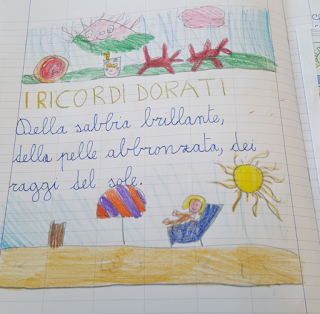 I RICORDI DORATI
Della sabbia brillante,
della pelle abbronzata, dei
raggi del sole.